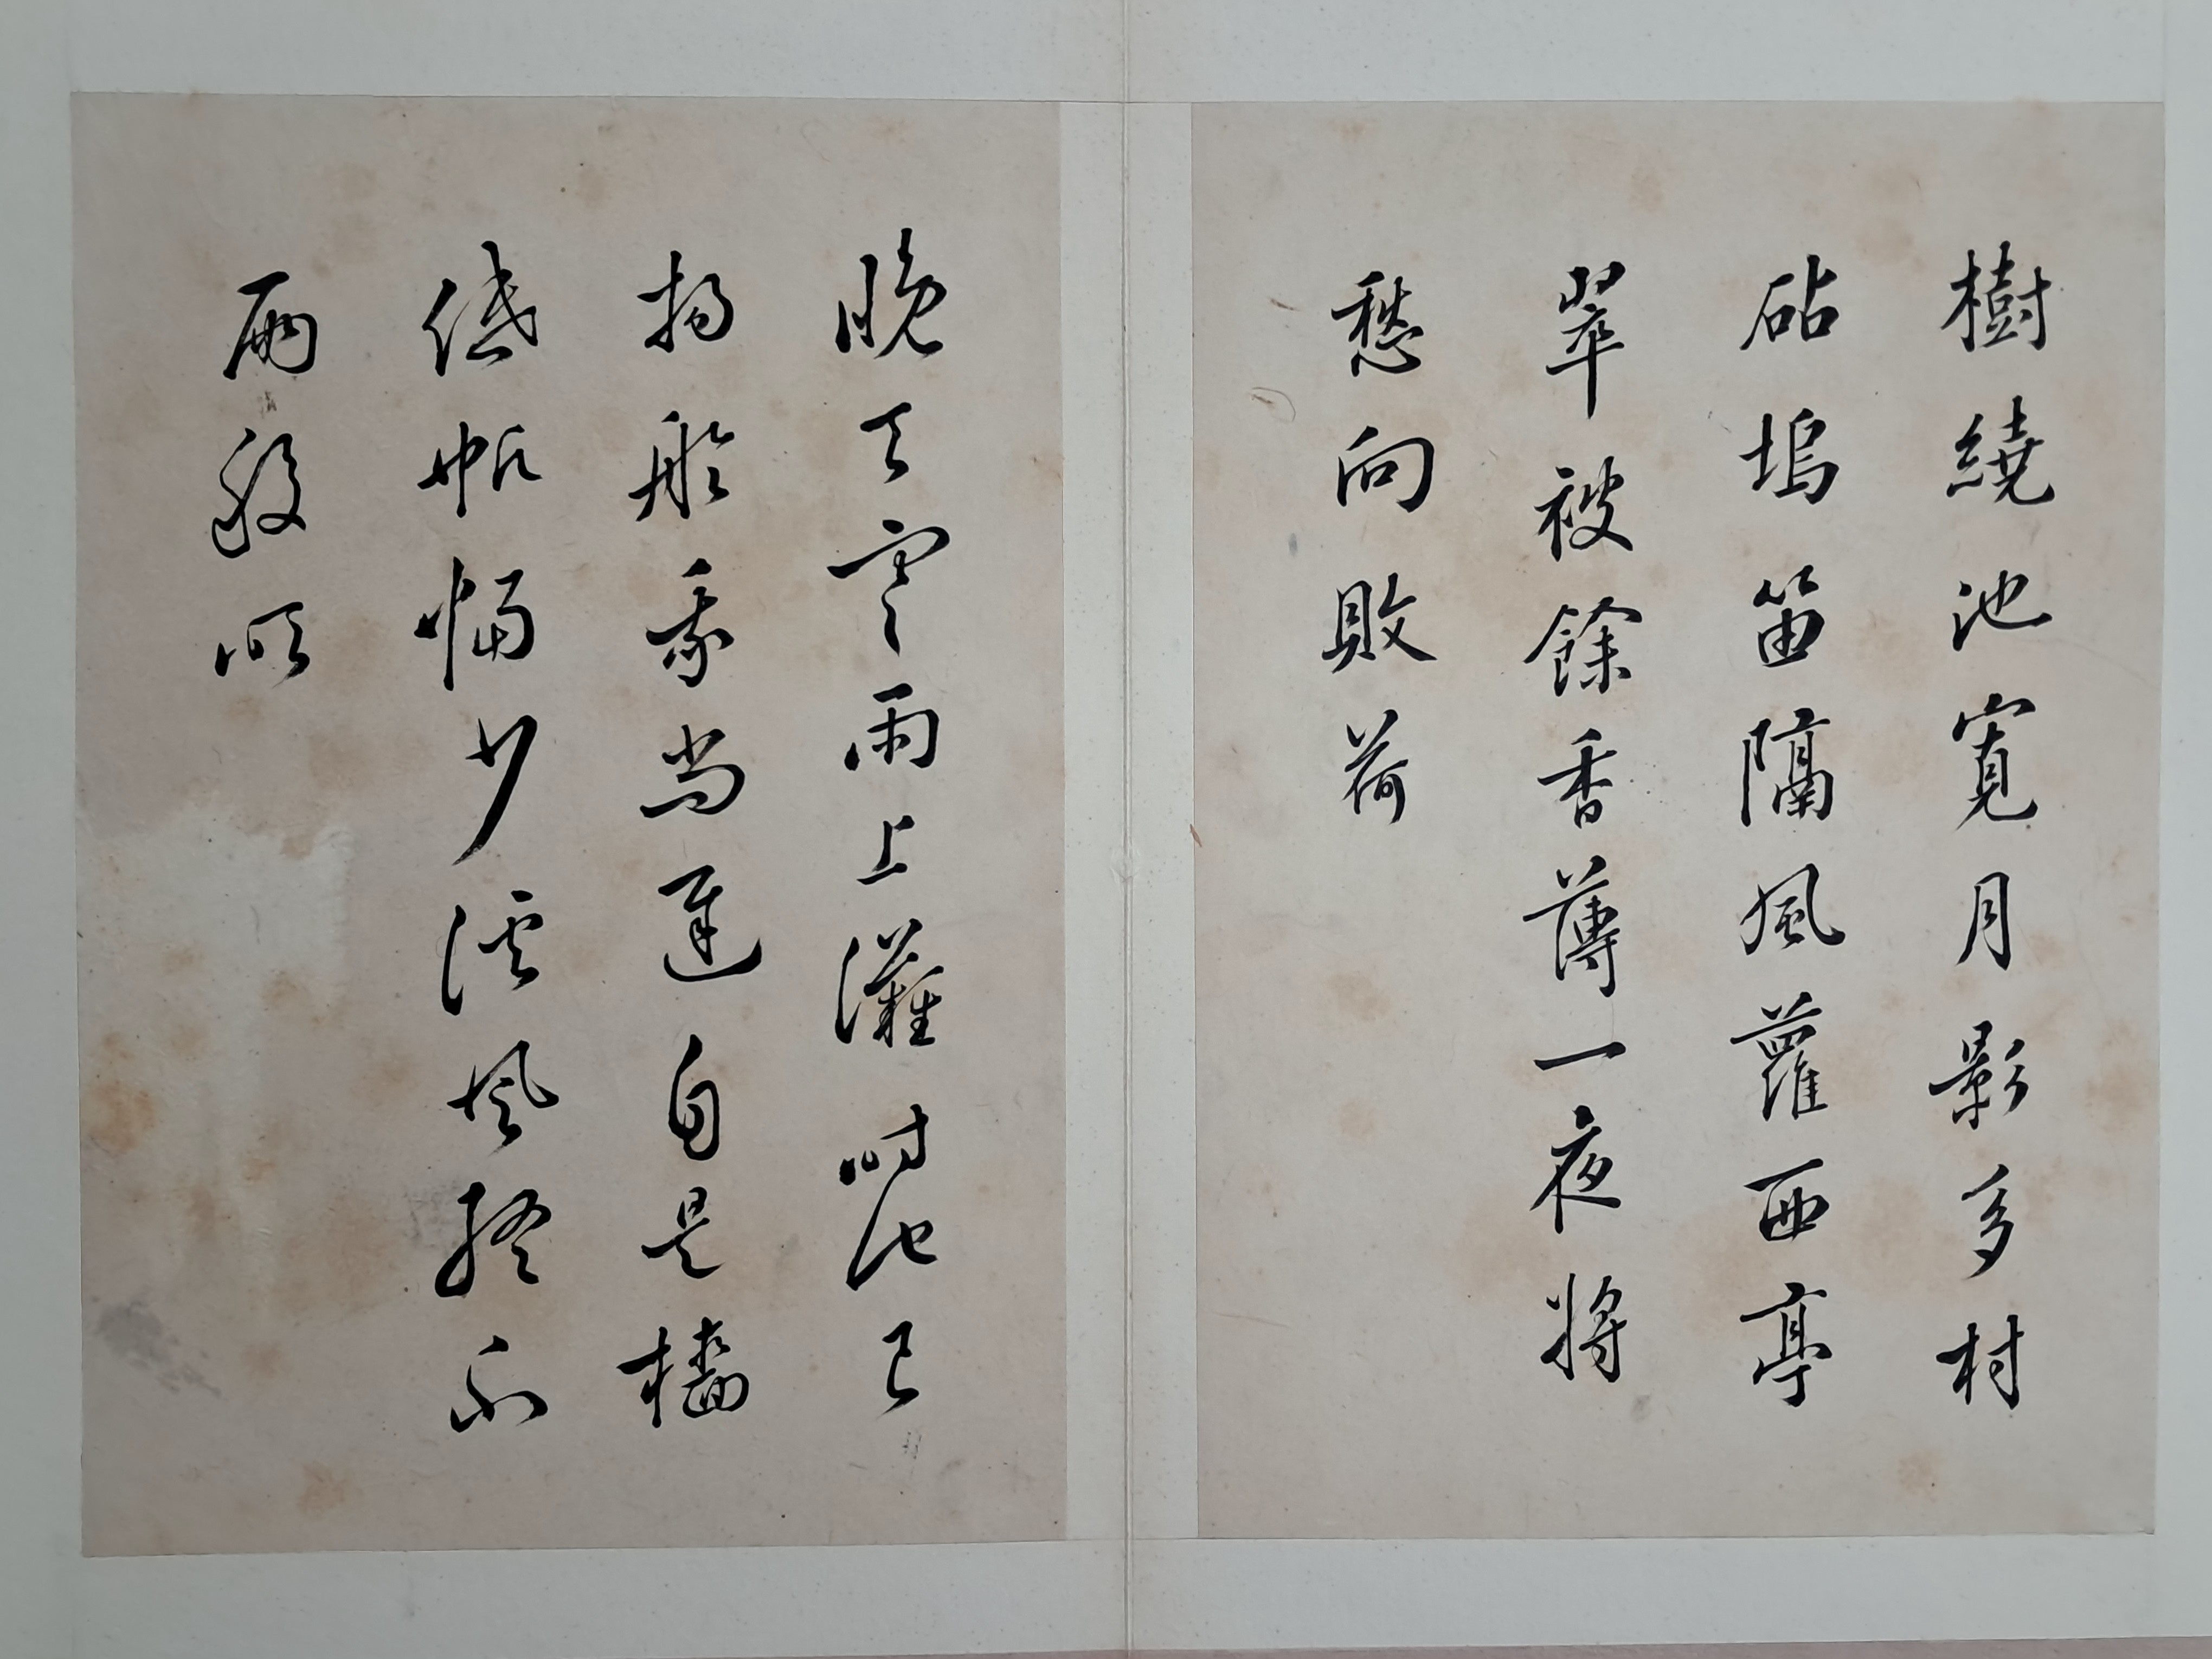 樹繞池寬月影多村
砧塢笛隔風蘿西亭
翠被餘香薄一夜將
愁向敗荷
晚天寒雨上灘時他已
揚舲我尚遲自是檣
低帆幅少溪風終不
兩般吹